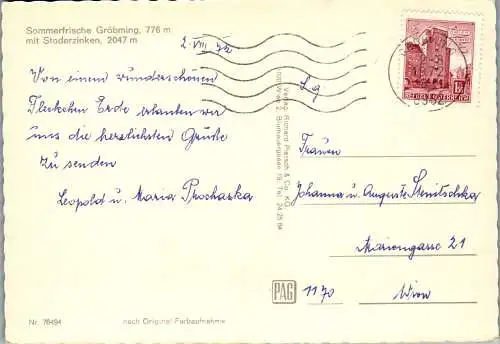 Sommerfrische Gröbming, 776 m
mit Stoderzinken, 2047 m
2. VIII 72
Von einem wunderschönen
Fleckchen Erde erlauben wir
uns die herzlichsten Grüße
zu senden
Leopold u. Maria Prochaska
Nr. 76494
nach Original-Farbaufnahme
Verlag Richard Pietsch & Co. KG
1020 Wien 2
Tel. 24 25 64
PAG
REPUBLIK ÖSTERREICH
Frauen
Johanna u. Auguste
Mariengasse 21
1170
Wien